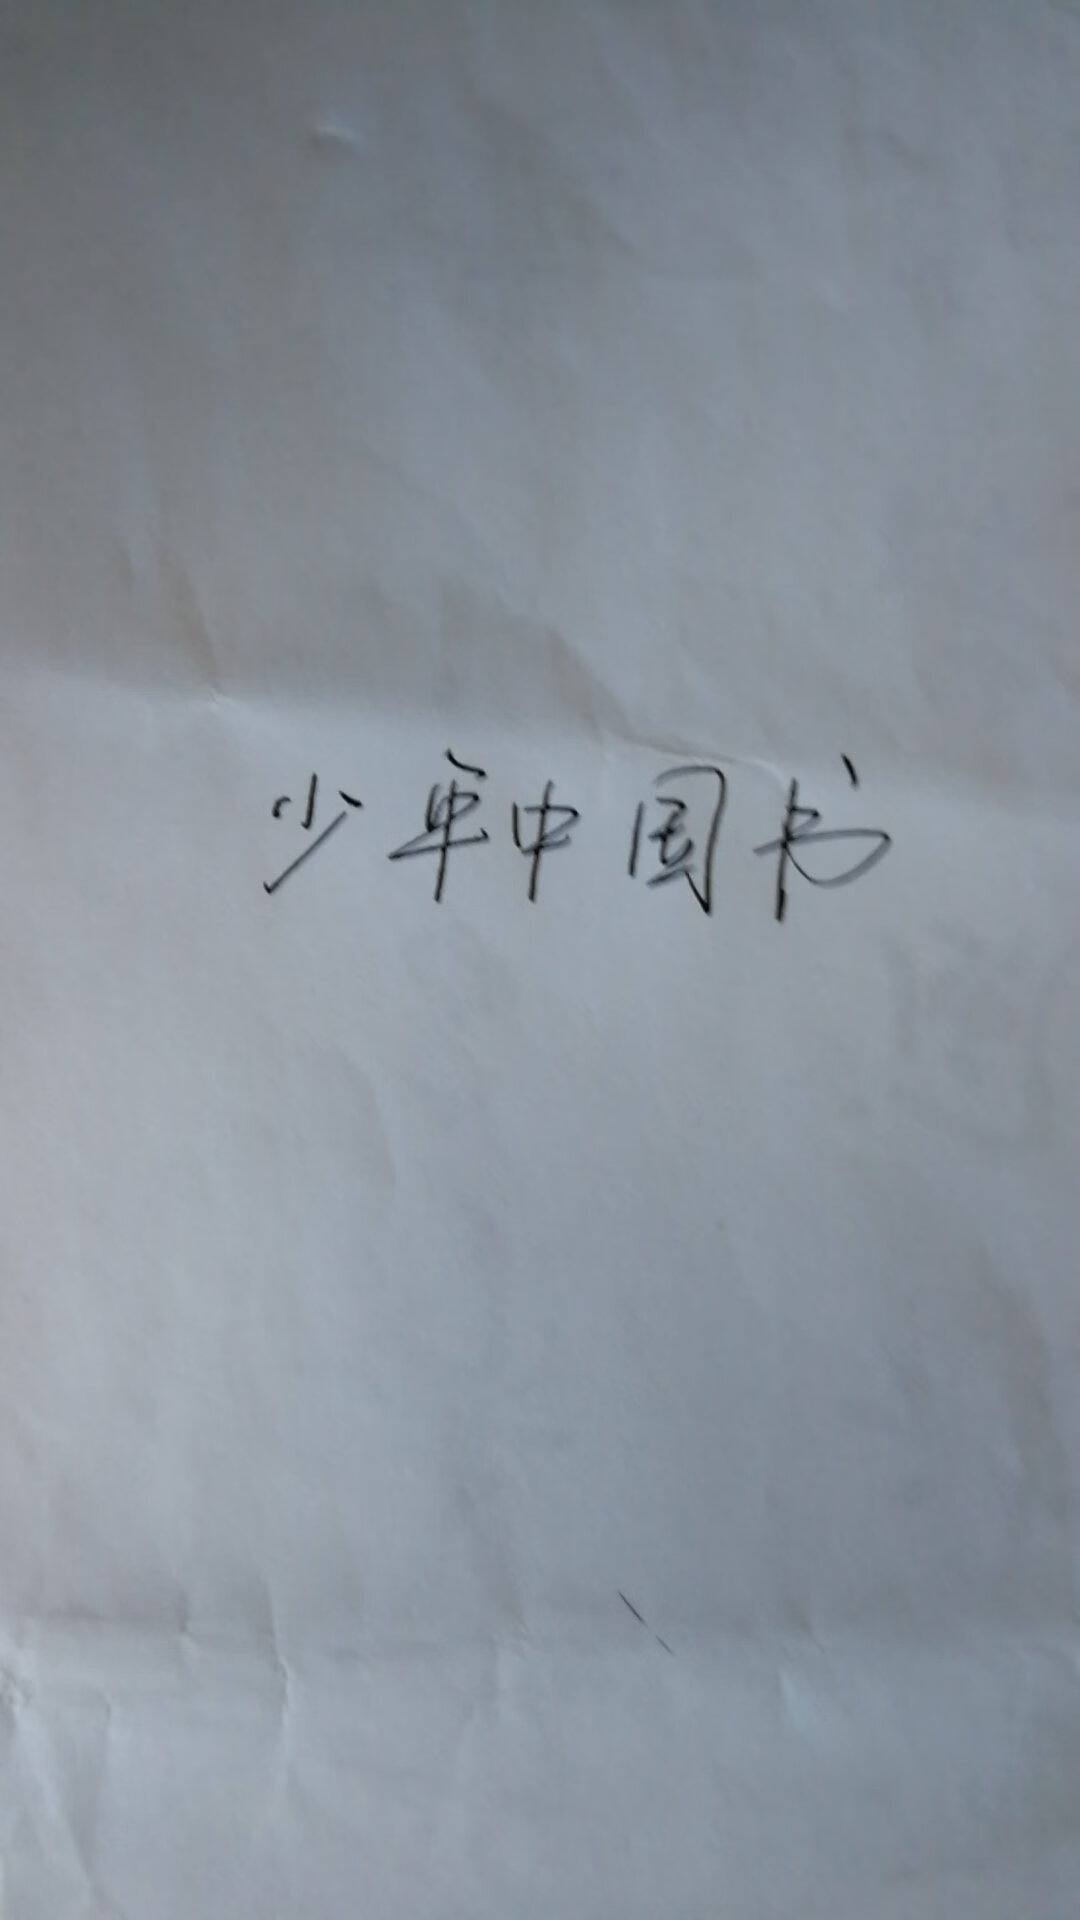 少年中国书